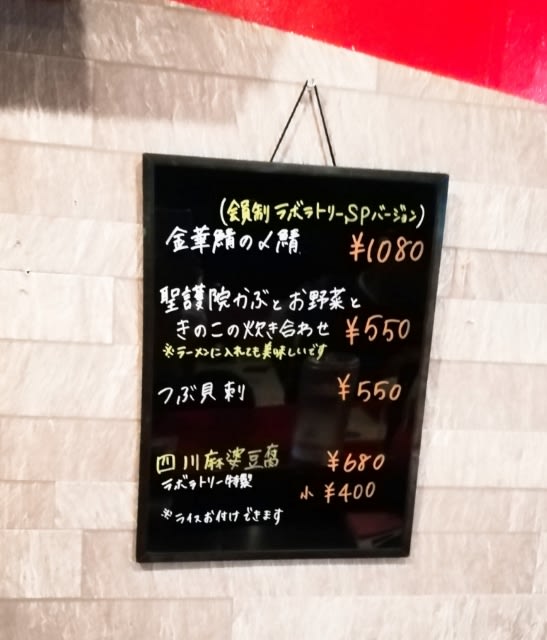 (会員制 ラボラトリーSPバージョン)
金華鯖の〆鯖 ¥1080
聖護院かぶとお野菜と
きのこの炊き合わせ ¥550
※ラーメンに入れても美味しいです
つぶ貝刺 ¥550
四川麻婆豆腐 ¥680
ラボラトリー特製 小 ¥400
※ライスお付けできます